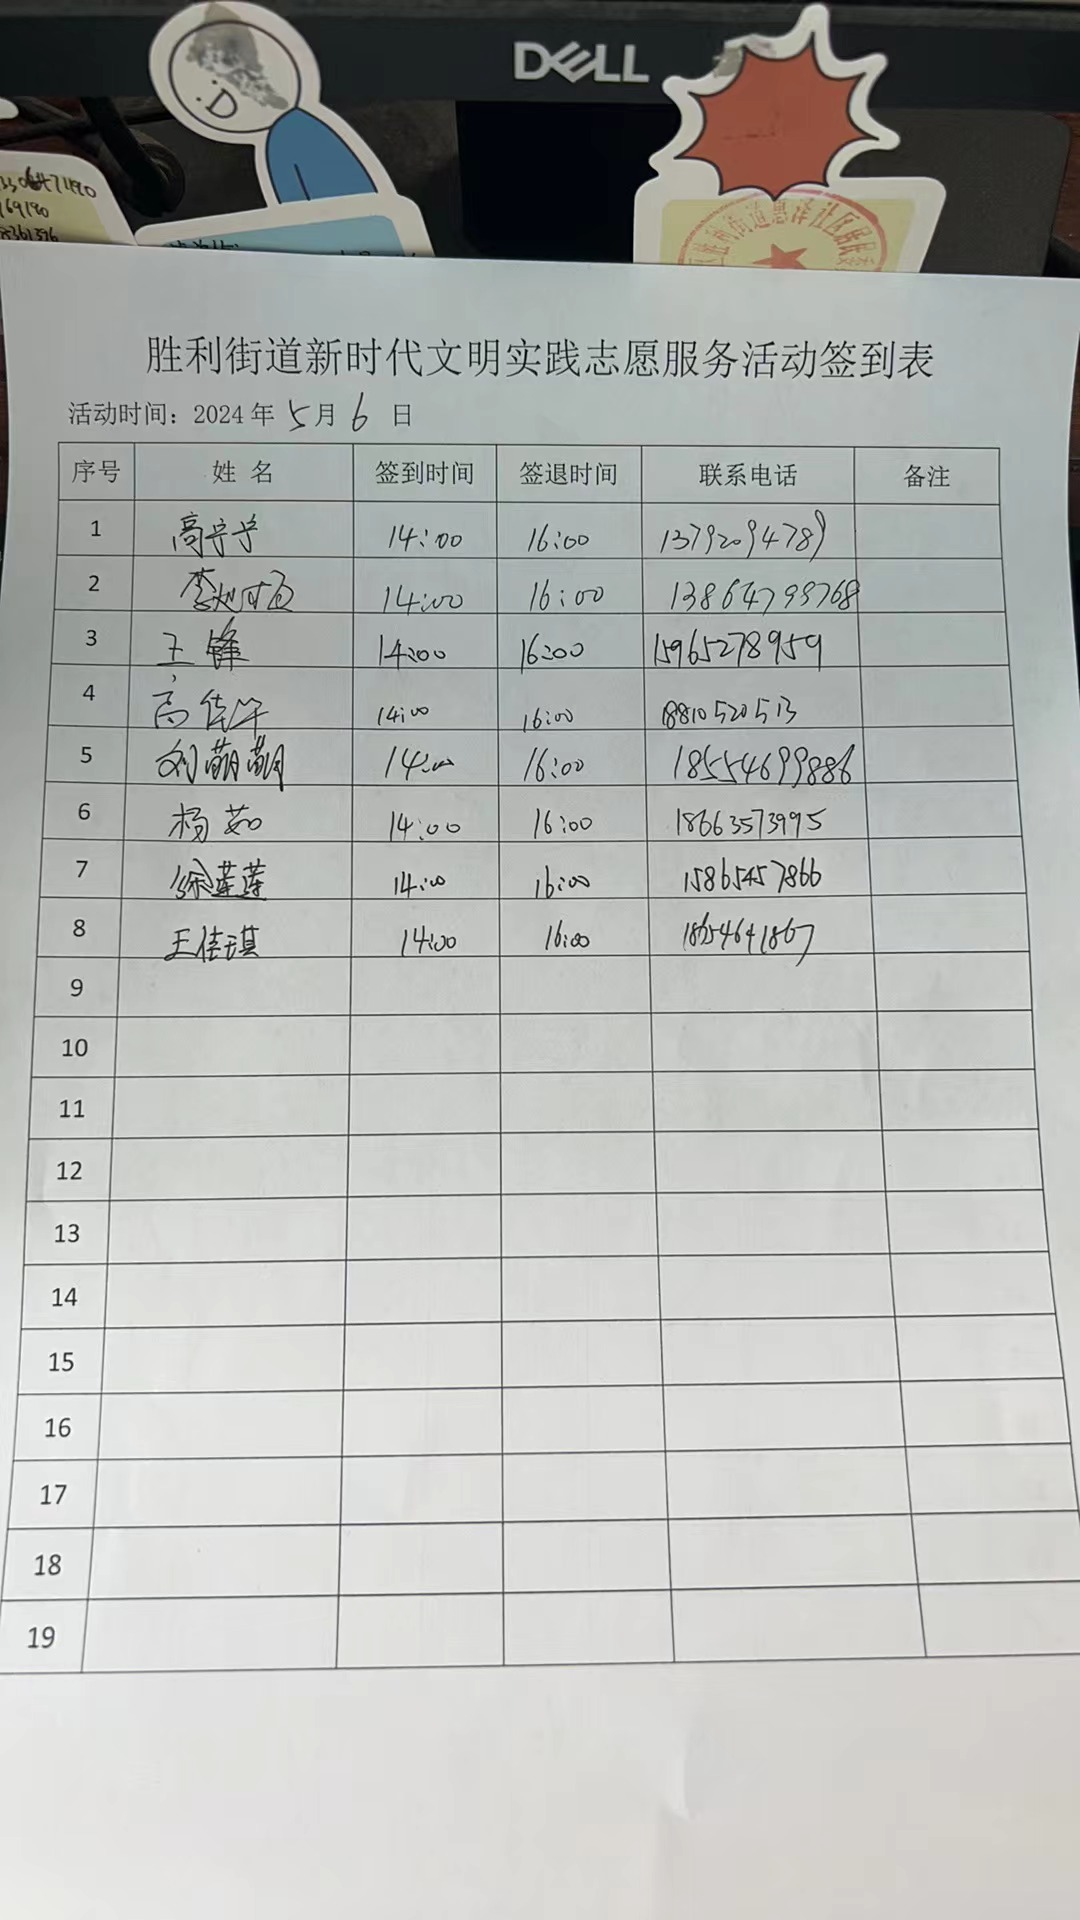 DELL
169190
胜利街道惠泽社区居民委
胜利街道新时代文明实践志愿服务活动签到表
活动时间：2024 年 5 月 6 日
序号 姓 名 签到时间 签退时间 联系电话 备注
1 高宁宁 14:00 16:00 13792094789
2 李 14:00 16:00 13864799768
3 王锋 14:00 16:00 15965278959
4 高佳华 14:00 16:00 18810520513
5 刘萌萌 14:00 16:00 18554699886
6 杨茹 14:00 16:00 18663573995
7 徐莲莲 14:00 16:00 15865457866
8 王佳琪 14:00 16:00 18654641867
9
10
11
12
13
14
15
16
17
18
19